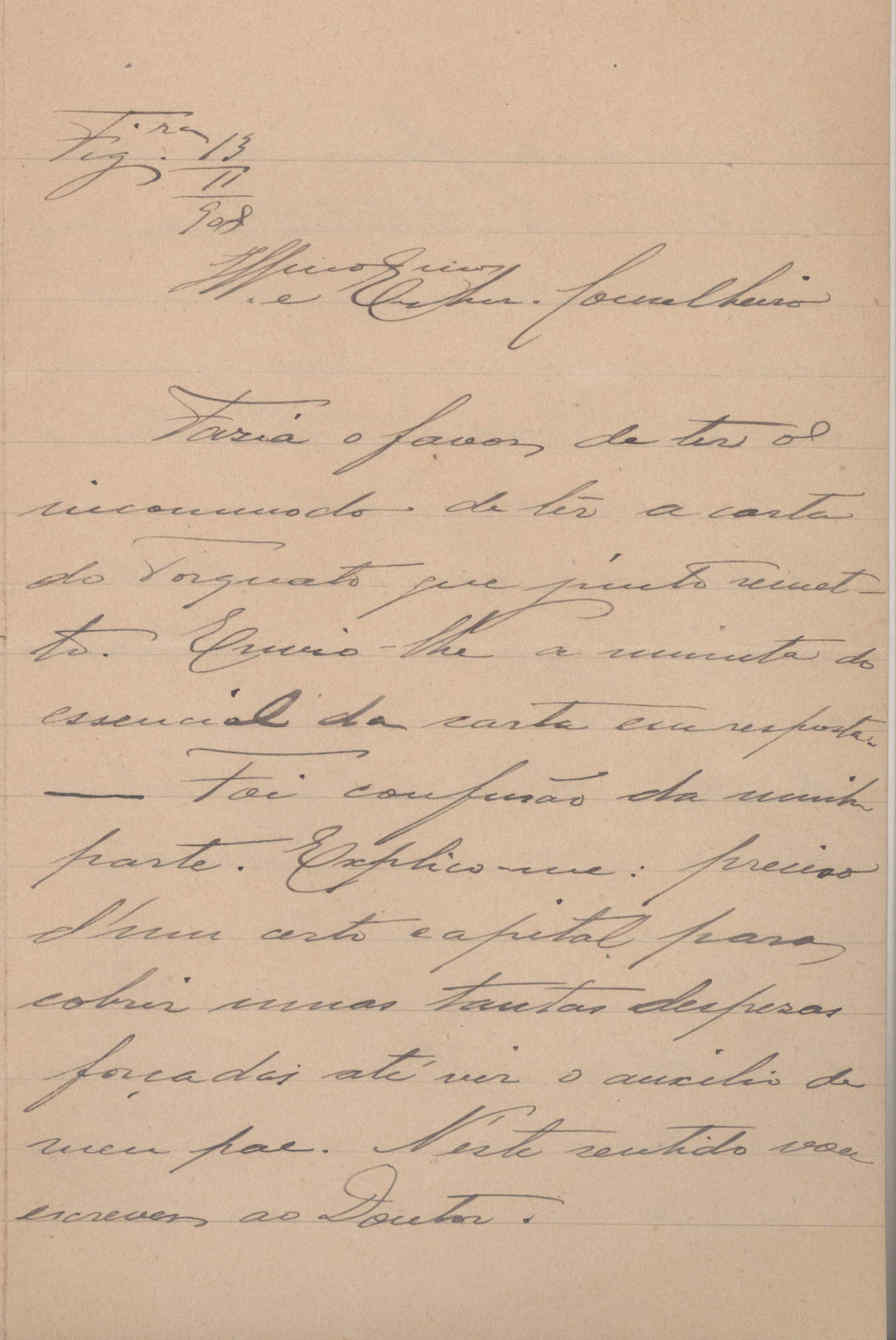 Fig.ra 13
11
908
Illmo Exmo
e Conselheiro
Faria o favor de ter o
incommodo de lêr a carta
do Torquato que junto remet-
to. Envio-lhe a minuta do
essencial da carta em resposta.
— Foi confusão da minha
parte. Explico-me: preciso
d'um certo capital para
cobrir umas tantas despezas
forçadas até vir o auxilio de
meu pae. N'este sentido vou
escrever ao Doutor.